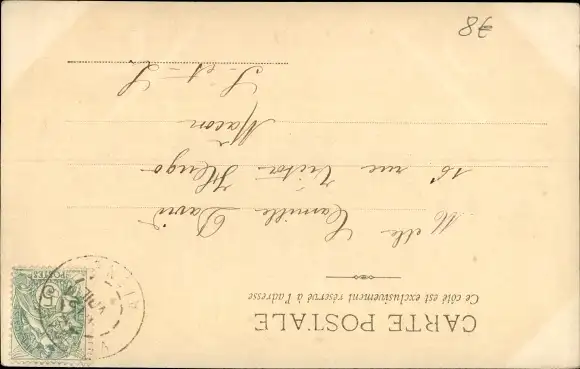 CARTE POSTALE
Ce côté est exclusivement réservé à l'adresse
Melle Camille David
16 rue Victor Hugo
Mâcon
S-et-L
POSTES
78